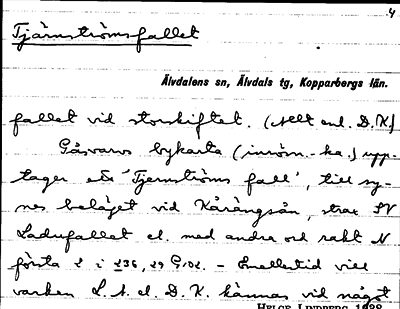 4
Tjärnströmsfallet
Älvdalens sn, Älvdals tg, Kopparbergs län.
fallet vid storskiftet. (Allt enl. D.K.)
Gåsvarvs bykarta (inröm.-ka.) upp-
tager ett 'Tjernströms fall', till sy-
nes beläget vid Kåröängsån, strax SV
Ladufallet el. med andra ord rakt N
första 2 i 236, 29 G:02. - Emellertid vill
varken L.A. el. D.K. kännas vid något
HELGE LINDBERG 1938